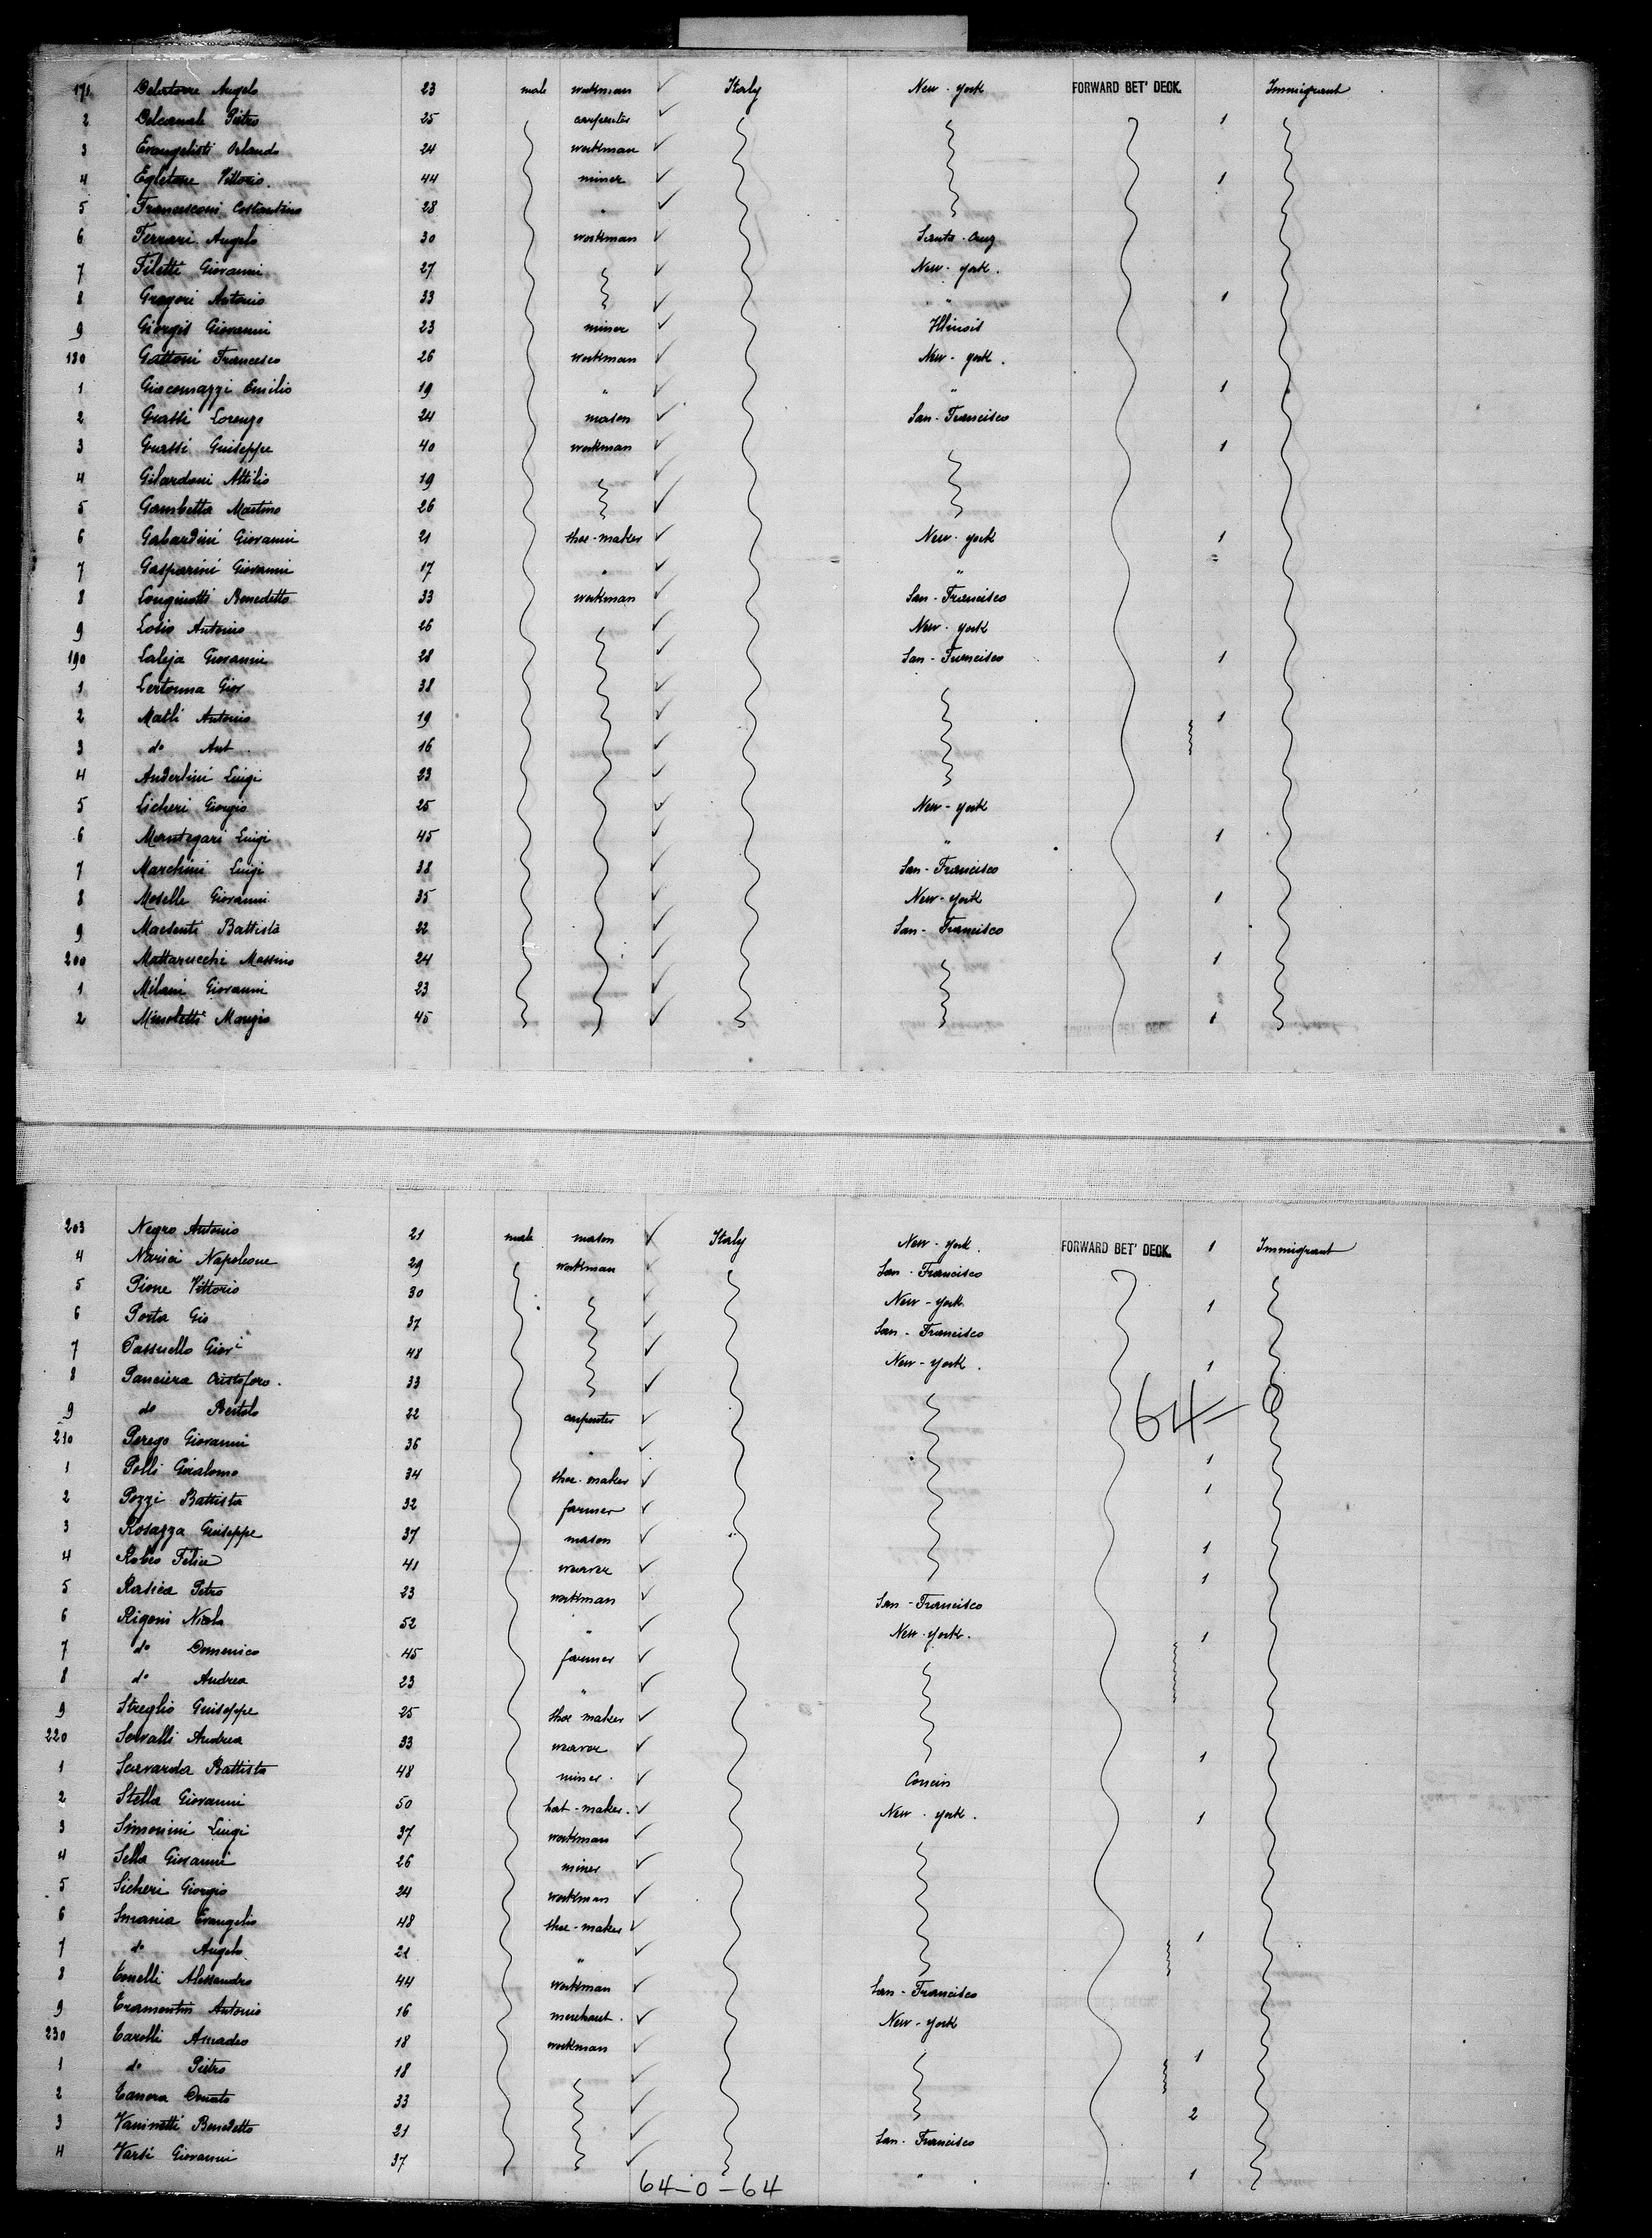 171 Delatorre Angelo 23 male workman ✓ Italy New-York FORWARD BET' DECK. Immigrant
2 Delcanale Pietro 25 carpenter ✓ 1
3 Evangelisti Orlando 24 workman ✓
4 Egletone Vittorio. 44 miner ✓ 1
5 Francesconi Costantino 28 " ✓
6 Ferrari Angelo 30 workman ✓ Santa-Cruz
7 Filetti Giovanni 27 ✓ New-York.
8 Gregori Antonio 33 ✓ " 1
9 Giorgis Giovanni 23 miner ✓ Illinois
180 Gattoni Francesco 26 workman ✓ New-York.
1 Giacomazzi Emilio 19 " ✓ " 1
2 Grassi Lorenzo 24 mason ✓ San-Francisco
3 Grassi Guiseppe 40 workman ✓ 1
4 Gilardoni Attilio 19 ✓
5 Gambetta Martino 26 ✓
6 Gabardini Giovanni 21 shoe-maker ✓ New-York 1
7 Gasparini Giovanni 17 " ✓ " =
8 Longinotti Benedetto 33 workman ✓ San-Francisco
9 Losio Antonio 26 ✓ New-York
190 Laleja Giovanni 28 ✓ San-Francisco 1
1 Lertonna Giov 38 ✓
2 Matli Antonio 19 ✓ 1
3 do Ant. 16 ✓
4 Anderlini Luigi 23 ✓
5 Licheri Giorgio 25 ✓ New-York
6 Montegari Luigi 45 ✓ " 1
7 Marchini Luigi 38 ✓ San-Francisco
8 Moselle Giovanni 35 ✓ New-York 1
9 Maesenti Battista 22 ✓ San-Francisco
200 Mattarucchi Massimo 24 ✓ 1
1 Milani Giovanni 23 ✓
2 Minoletti Maregio 45 ✓ 1
203 Negro Antonio 21 male mason ✓ Italy New-York. FORWARD BET' DECK. 1 Immigrant
4 Narici Napoleone 29 workman ✓ San-Francisco
5 Pione Vittorio 30 ✓ New-York. 1
6 Porta Gio 37 ✓ San-Francisco
7 Passuello Giov 48 ✓ New-York. 1
8 Panciera Cristoforo. 33 ✓
64-0
9 do Bertolo 22 carpenter ✓
210 Perego Giovanni 36 " ✓ 1
1 Polli Giacomo 34 shoe-maker ✓ 1
2 Pozzi Battista 32 farmer ✓
3 Rosazza Guiseppe 37 mason ✓ 1
4 Robio Felice 41 weaver ✓ 1
5 Rasica Petro 23 workman ✓ San-Francisco
6 Rigoni Nicola 52 " ✓ New-York. 1
7 do Domenico 45 farmer ✓
8 do Andrea 23 " ✓
9 Streglio Guiseppe 25 shoe maker ✓
220 Servalli Andrea 33 weaver ✓ 1
1 Savarda Battista 48 miner. ✓
2 Stella Giovanni 50 hat-maker. ✓ New-York. 1
3 Simonini Luigi 37 workman ✓
4 Sella Giovanni 26 miner ✓
5 Sicheri Giorgio 24 workman ✓
6 Smania Evangelio 48 shoe-maker ✓ 1
7 do Angelo 21 " ✓
8 Tonelli Alessandro 44 workman ✓ San-Francisco
9 Tramontin Antonio 16 merchant. ✓ New-York
230 Tarolli Amadeo 18 workman ✓ 1
1 do Pietro 18 ✓
2 Tanera Donato 33 ✓ 2
3 Vaninetti Benedetto 21 ✓ San-Francisco
4 Varsi Giovanni 37 ✓ " 1
64-0-64